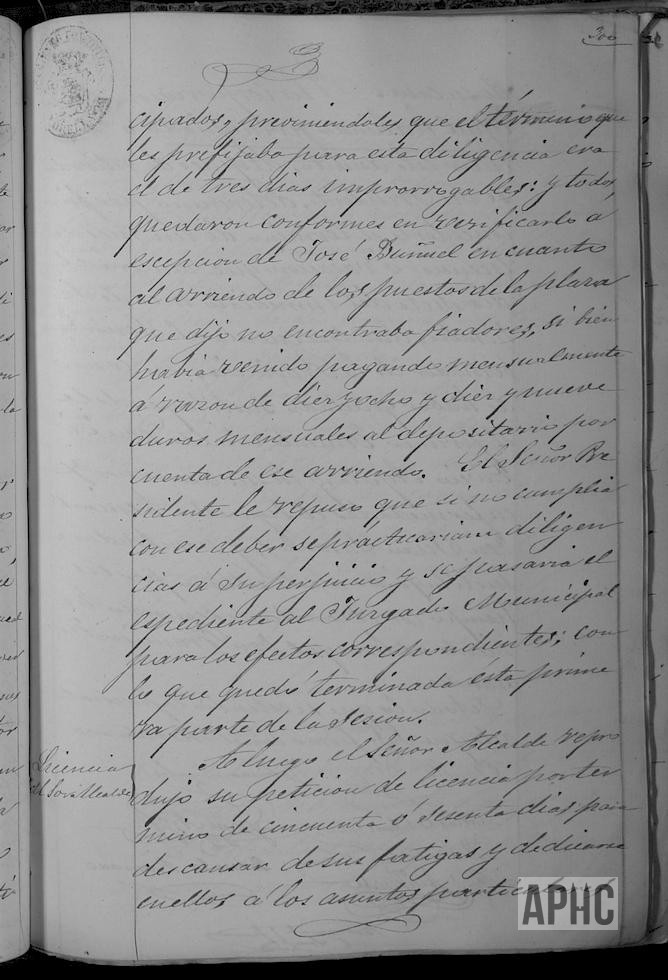 300
cipados, previniendoles que el término que
les prefijaba para esta diligencia era
el de tres dias improrrogables: y todos
quedaron conformes en verificarlo á
escepcion de José Buñuel en cuanto
al arriendo de los puestos de la plaza
que dijo no encontraba fiadores, si bien
habia venido pagando mensualmente
á razon de diez y ocho y diez y nueve
duros mensuales al depositario por
cuenta de ese arriendo. El Señor Pre
sidente le repuso que si no cumplia
con ese deber se practicarian diligen
cias á su perjuicio y se pasaria el
espediente al Juzgado Municipal
para los efectos correspondientes; con
lo que quedó terminada ésta prime
ra parte de la sesion.
Licencia
del Sor. Alcalde
A luego el Señor Alcalde repro
dujo su peticion de licencia por ter
mino de cincuenta ó sesenta dias para
descansar de sus fatigas y dedicarse
en ellos á los asuntos particulares
APHC